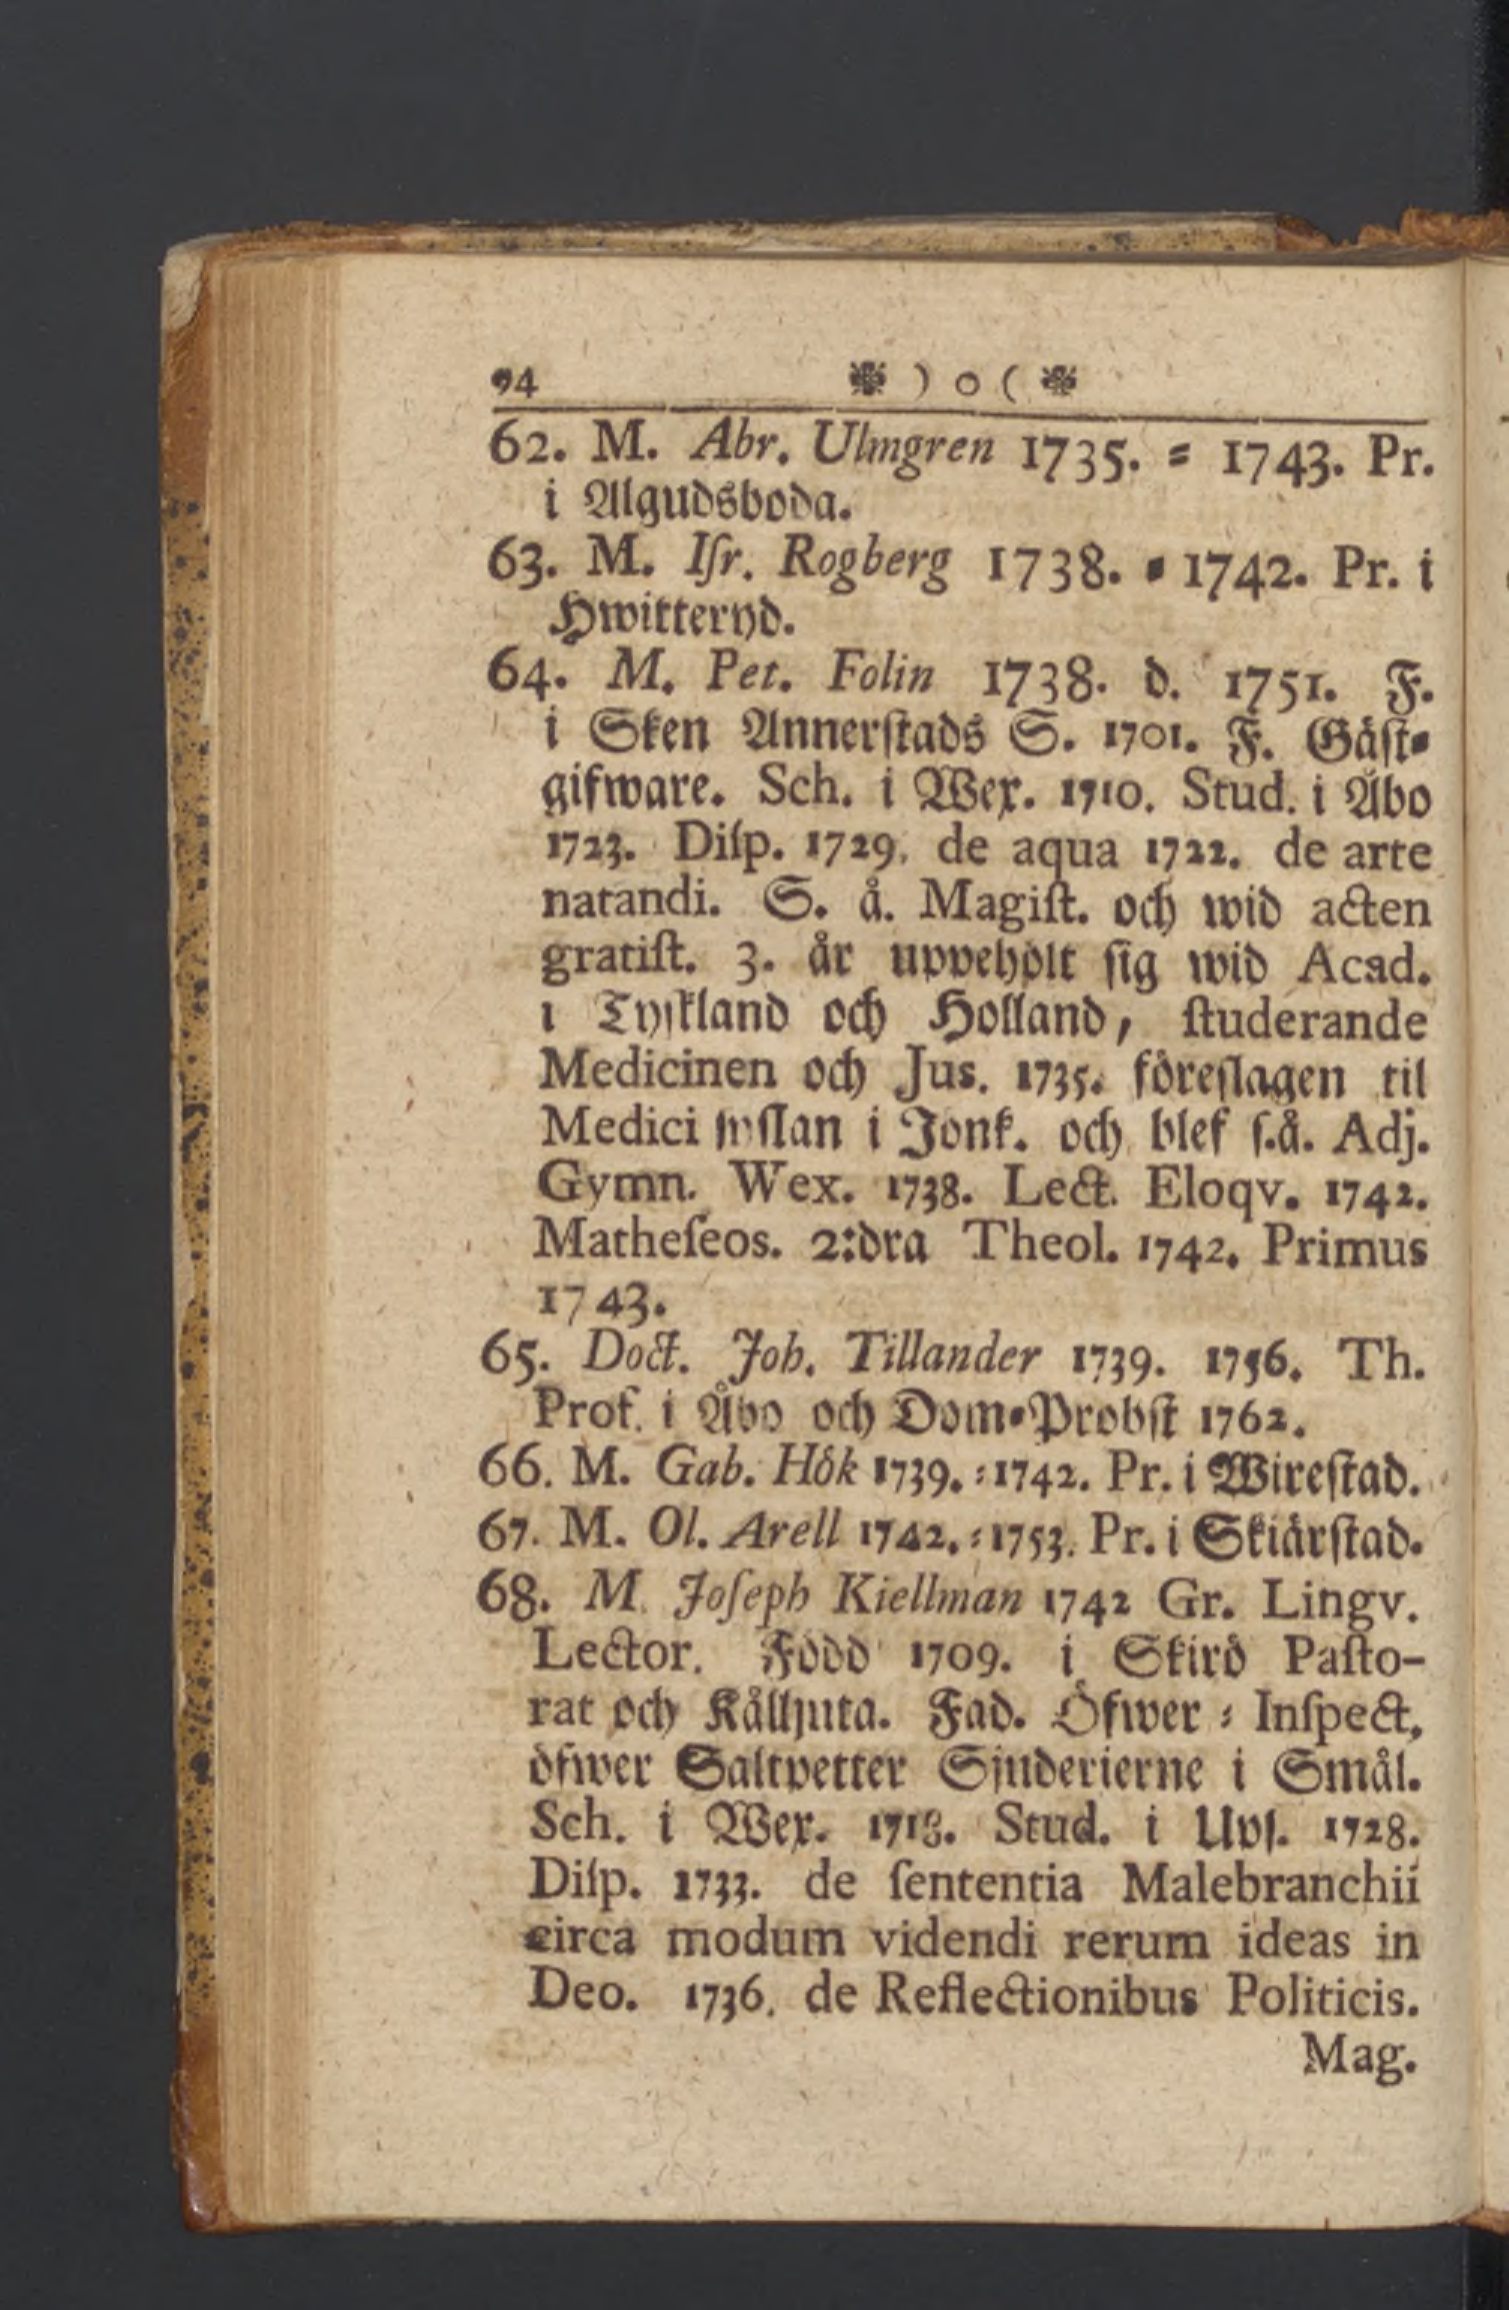 94 ❋ ) o ( ❋
62. M. Abr. Ulmgren 1735. = 1743. Pr.
i Algudsboda.
63. M. Iſr. Rogberg 1738. = 1742. Pr. i
Hwitteryd.
64. M. Pet. Folin 1738. d. 1751. F.
i Sken Annerſtads S. 1701. F. Gäſt=
gifware. Sch. i Wex. 1710. Stud. i Åbo
1723. Diſp. 1729. de aqua 1722. de arte
natandi. S. å. Magiſt. och wid acten
gratiſt. 3. år uppehölt ſig wid Acad.
i Tyſkland och Holland, ſtuderande
Medicinen och Jus. 1735. föreſlagen til
Medici ſyſlan i Jonk. och blef ſ.å. Adj.
Gymn. Wex. 1738. Lect. Eloqv. 1742.
Matheſeos. 2:dra Theol. 1742. Primus
1743.
65. Doct. Joh. Tillander 1739. 1756. Th.
Prof. i Åbo och Dom=Probſt 1762.
66. M. Gab. Hök 1739. = 1742. Pr. i Wireſtad.
67. M. Ol. Arell 1742. = 1753. Pr. i Skiärſtad.
68. M. Joſeph Kiellman 1742 Gr. Lingv.
Lector. Född 1709. i Skirö Paſto-
rat och Kålljuta. Fad. Öfwer = Inſpect,
öfwer Saltpetter Sjuderierne i Smål.
Sch. i Wex. 1718. Stud. i Upſ. 1728.
Diſp. 1733. de ſententia Malebranchii
circa modum videndi rerum ideas in
Deo. 1736. de Reflectionibus Politicis.
Mag.